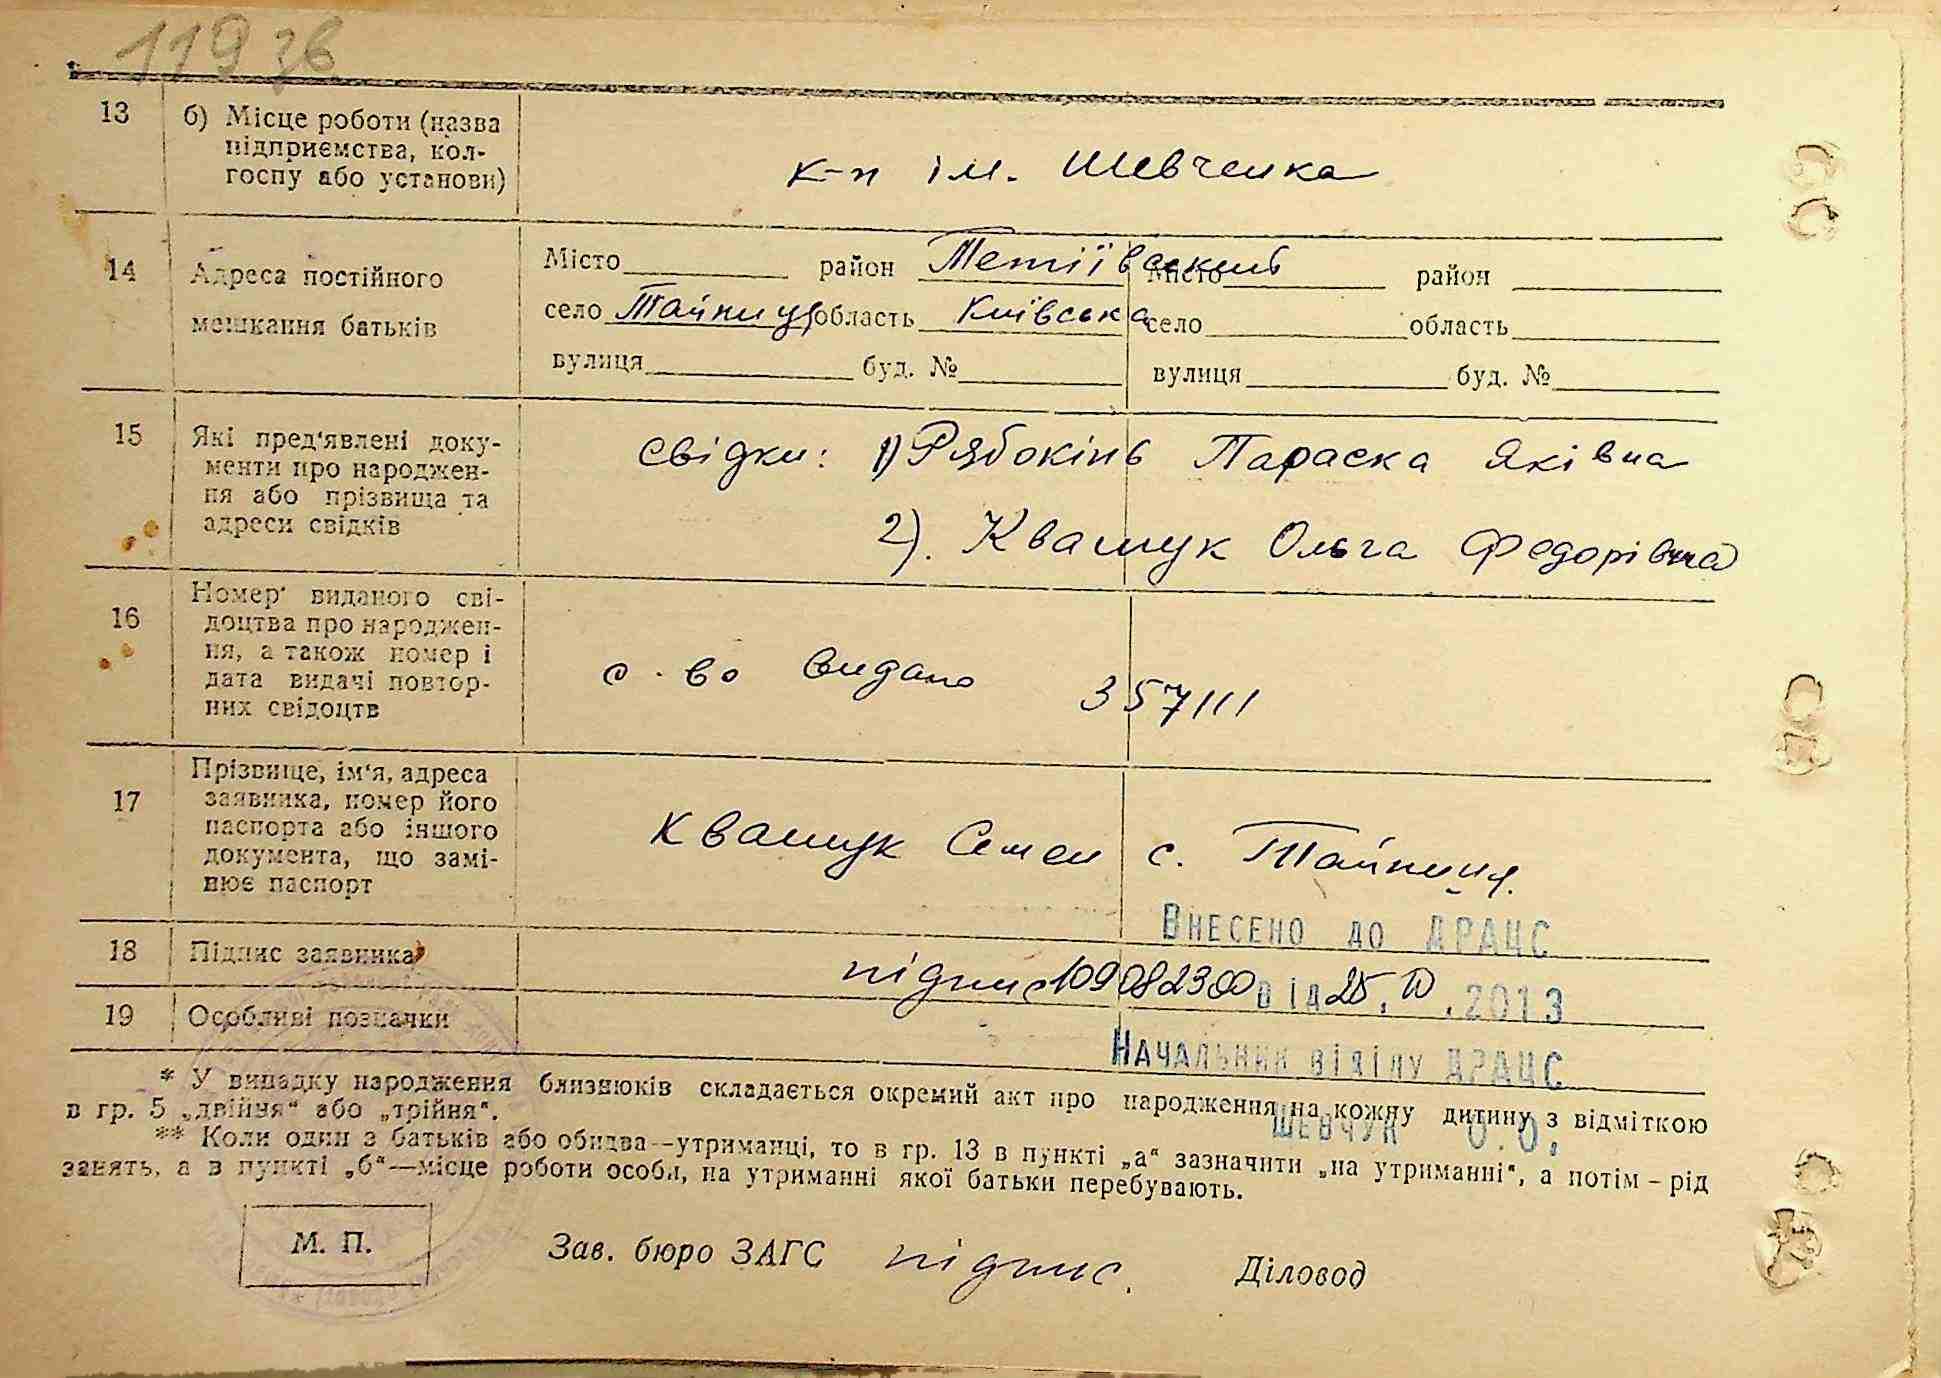 119 зв
13 б) Місце роботи (назва
підприємства, кол-
госпу або установи)
к-п ім. Шевченка
14 Адреса постійного
мешкання батьків
Місто район Тетіївський Місто район
село Тайниця область Київська село область
вулиця буд. № вулиця буд. №
15 Які пред'явлені доку-
менти про народжен-
ня або прізвища та
адреси свідків
свідки: 1) Рябокінь Параска Яківна
2). Квашук Ольга Федорівна
16 Номер виданого сві-
доцтва про народжен-
ня, а також номер і
дата видачі повтор-
них свідоцтв
с-во видано 357111
17 Прізвище, ім'я, адреса
заявника, номер його
паспорта або іншого
документа, що замі-
нює паспорт
Квашук Семен с. Тайниця.
Внесено до ДРАЦС
18 Підпис заявника
підпис 109082300 від 25. IV .2013
19 Особливі позначки
Начальник відділу ДРАЦС
* У випадку народження близнюків складається окремий акт про народження на кожну дитину з відміткою
в гр. 5 „двійня" або „трійня".
Шевчук О.О.
** Коли один з батьків або обидва—утриманці, то в гр. 13 в пункті „а" зазначити „на утриманні", а потім – рід
занять, а в пункті „б"—місце роботи особи, на утриманні якої батьки перебувають.
М. П. Зав. бюро ЗАГС підпис. Діловод